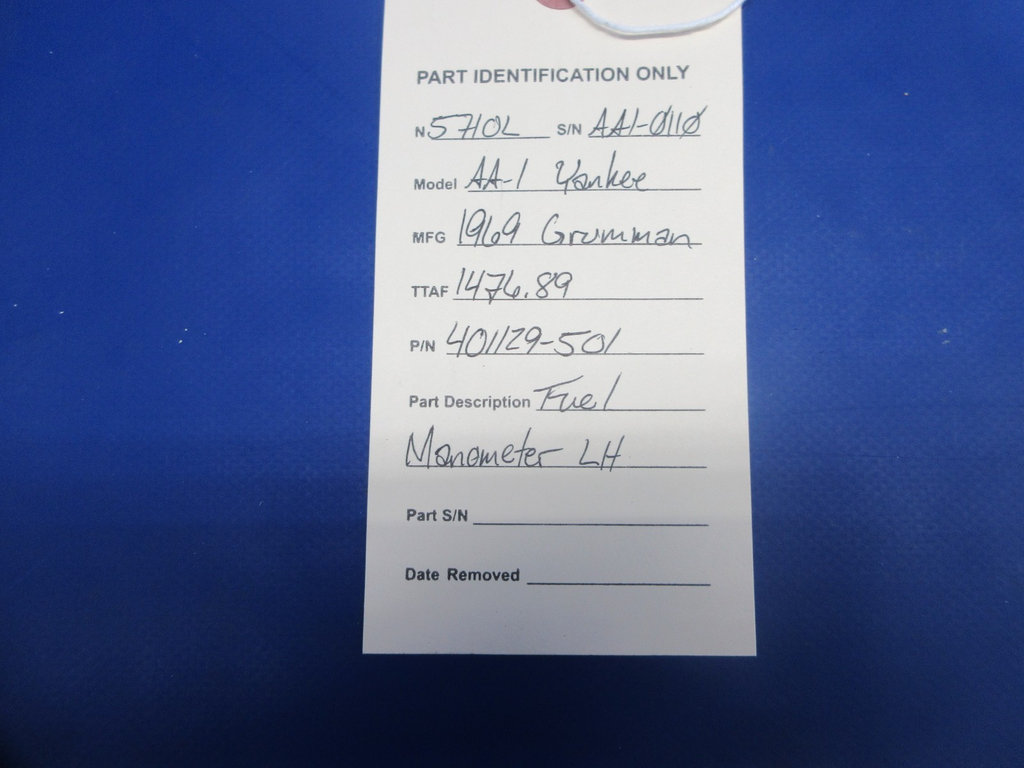 PART IDENTIFICATION ONLY
N 5710L S/N AA1-0110
Model AA-1 Yankee
MFG 1969 Grumman
TTAF 1476.89
P/N 401129-501
Part Description Fuel
Manometer LH
Part S/N
Date Removed